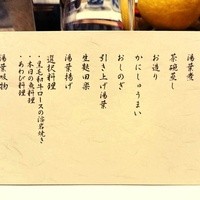 湯葉煮
茶碗蒸し
お造り
かにしゅうまい
おしのぎ
引き上げ湯葉
生麩田楽
湯葉揚げ
選択料理
・黒毛和牛ロースの溶岩焼き
・本日の魚料理
・あわび料理
湯葉吸物